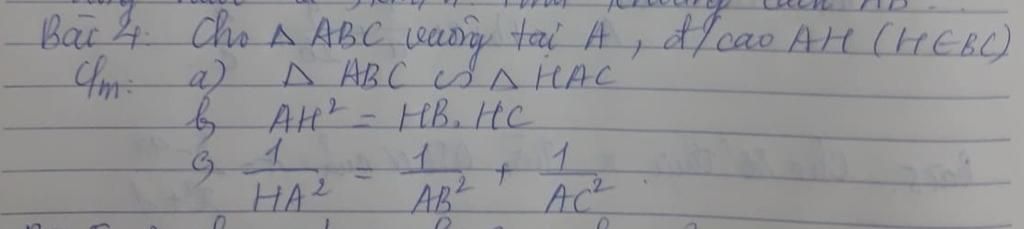 Bài 4. Cho Δ ABC vuông tại A, đ/cao AH (H∈BC)
Cm: a) Δ ABC ∽ Δ HAC
b, AH² = HB. HC
c, 1/HA² = 1/AB² + 1/AC².